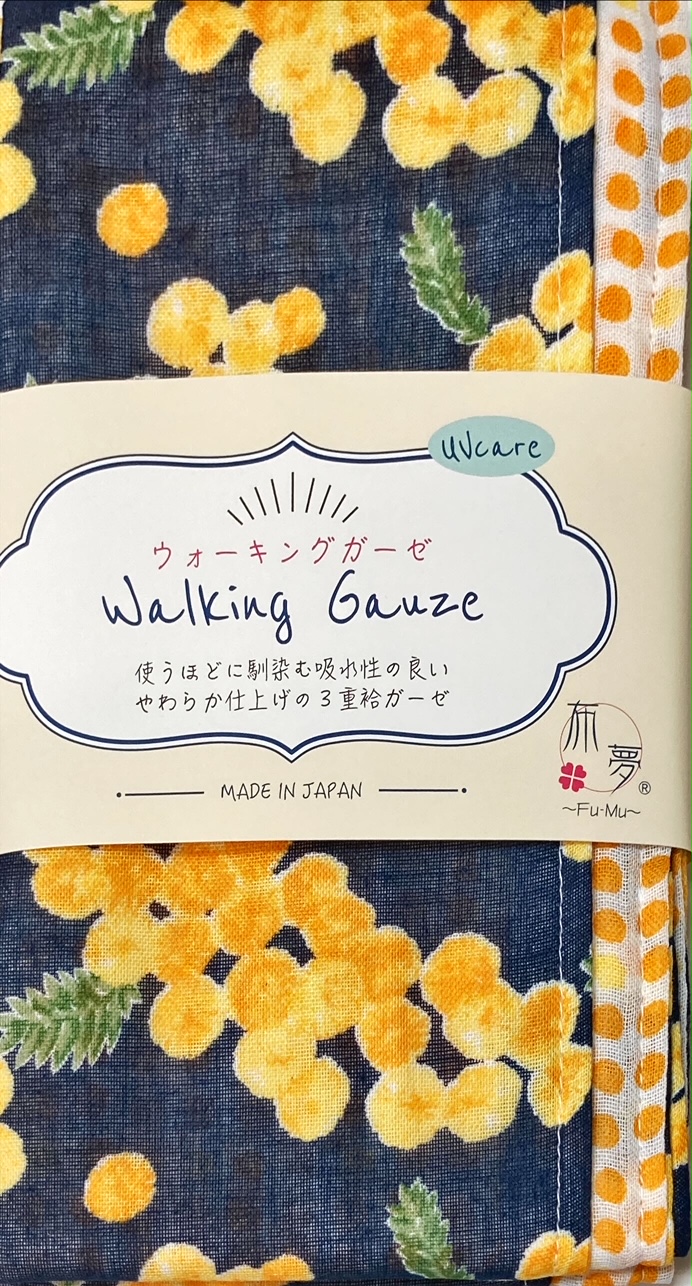 UVcare
ウォーキングガーゼ
Walking Gauze
使うほどに馴染む吸水性の良い
やわらか仕上げの3重袷ガーゼ
MADE IN JAPAN
布夢®
~Fu-Mu~